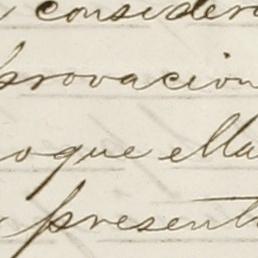 consider
provacion
oque ella
present